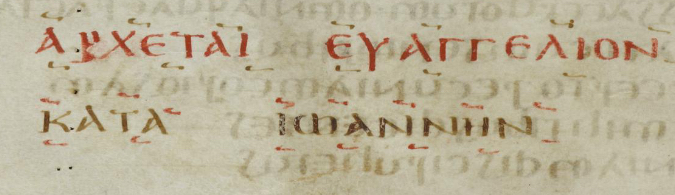 ΑΡΧΕΤΑΙ ΕΥΑΓΓΕΛΙΟΝ
ΚΑΤΑ ΙΩΑΝΝΗΝ